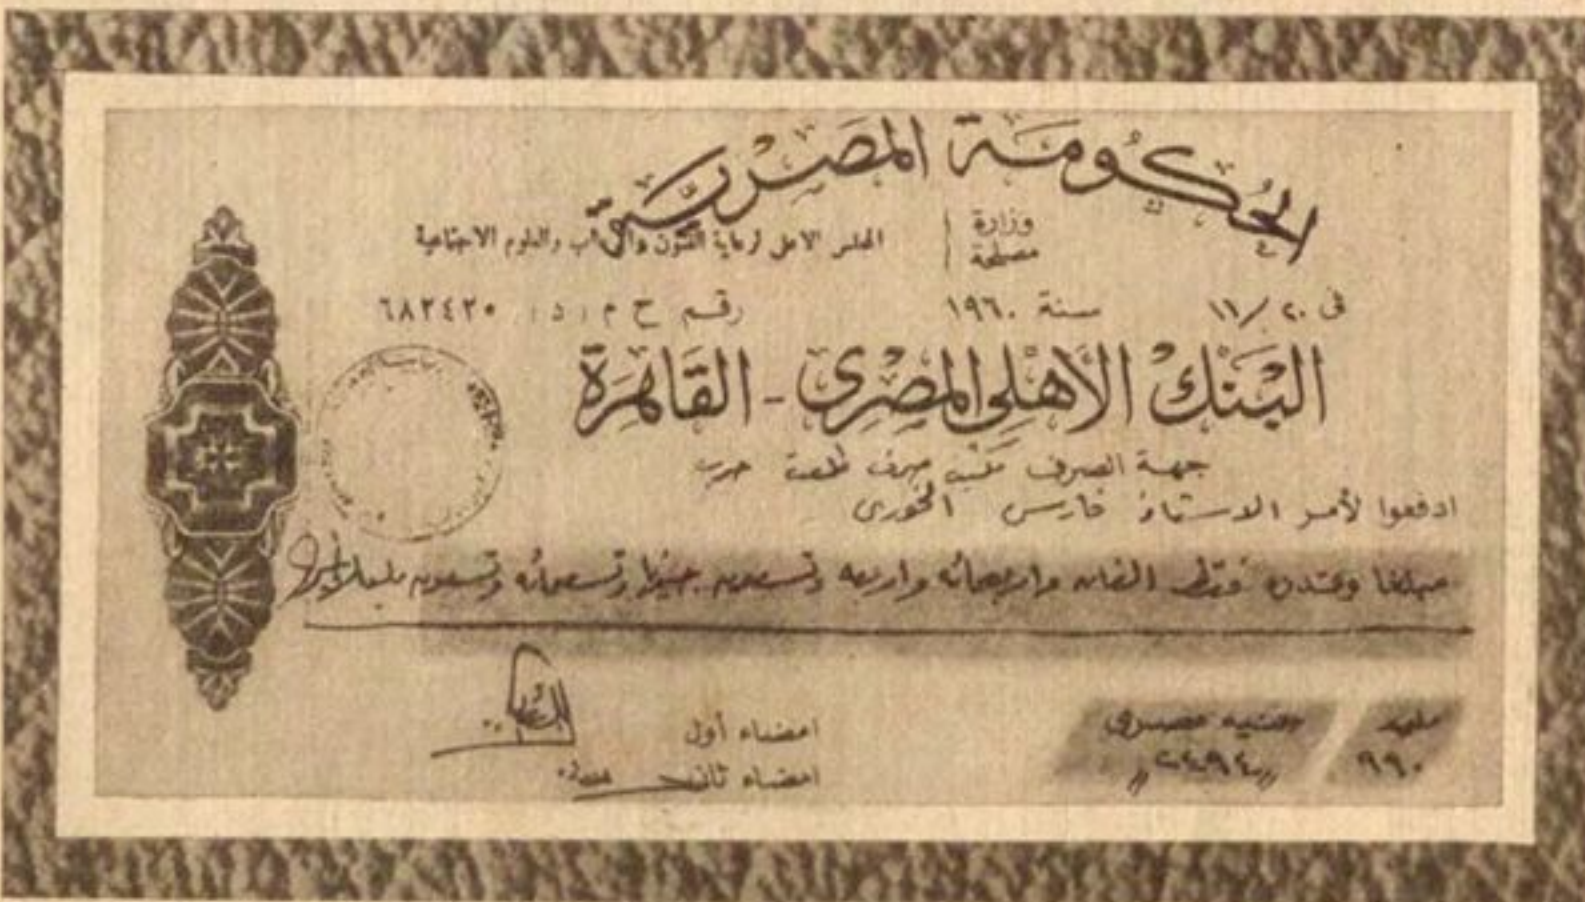 الحكومة المصرية
وزارة
مصلحة
المجلس الاعلى لرعاية الفنون والآداب والعلوم الاجتماعية
فى ٢٠ / ١١ سنة ١٩٦٠ رقم ح م د ٦٨٢٤٢٥
البنك الأهلى المصرى - القاهرة
جهة الصرف مكتب صرف طلعت حرب
ادفعوا لأمر الاستاذ فارس الخورى
مبلغا وقدره فقط الفان واربعمائه واربعه وتسعون جنيها وتسعمائه وتسعون مليما
مليم جنيه مصرى
٩٩٠ "٢٤٩٤"
امضاء أول
امضاء ثان